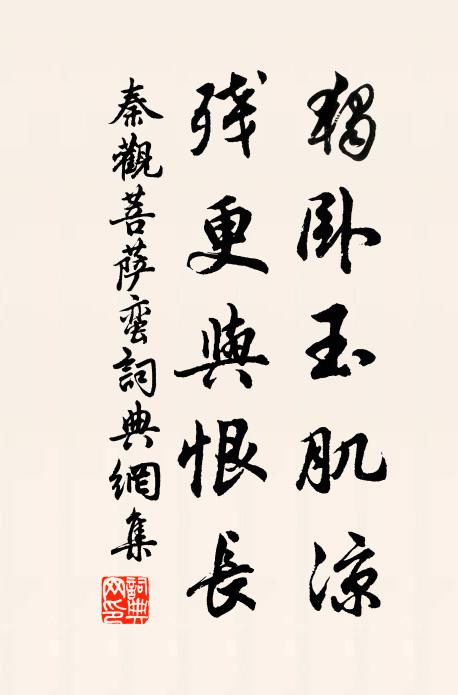 獨卧玉肌涼
殘更與恨長
秦觀菩薩蠻詞典網集
詞典网印